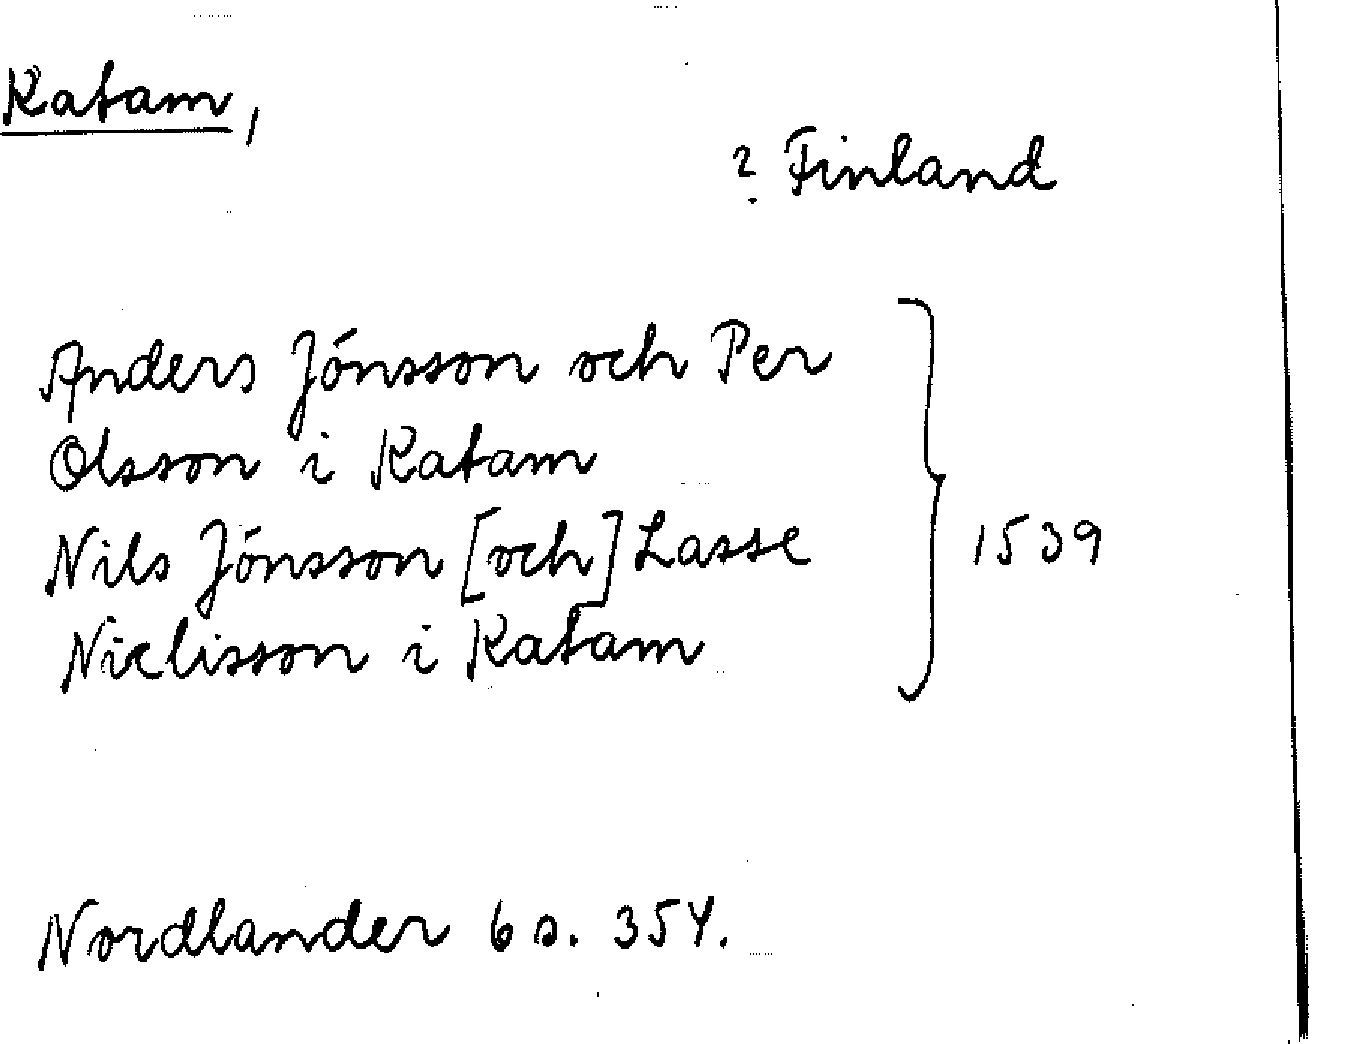 Katam,
? Finland
Anders Jónsson och Per
Olsson i Katam
Nils Jónsson [och] Lasse
Niclisson i Katam
1539
Nordlander 6 s. 354.